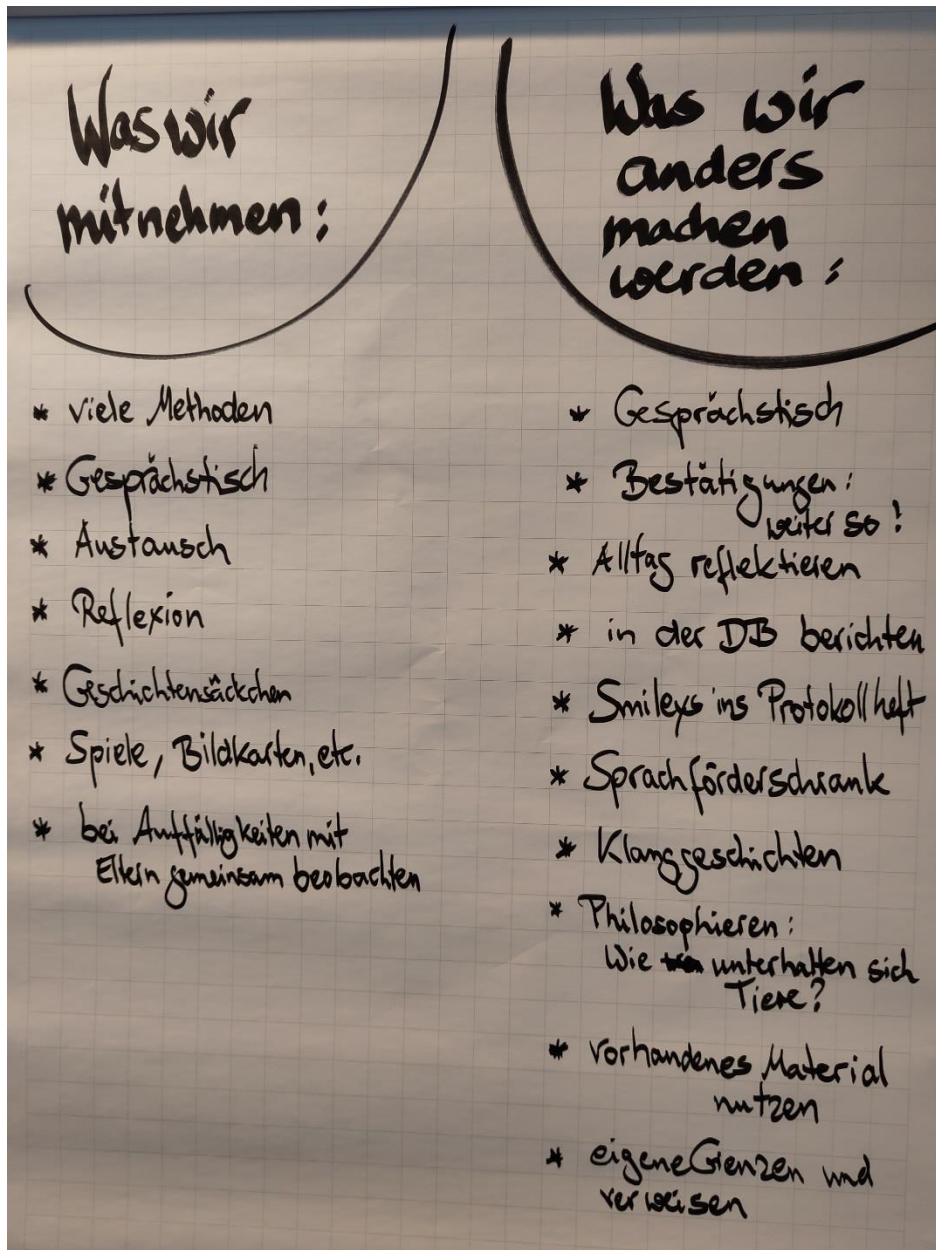 Was wir
mitnehmen:
* viele Methoden
* Gesprächstisch
* Austausch
* Reflexion
* Geschichtensäckchen
* Spiele, Bildkarten, etc.
* bei Auffälligkeiten mit
Eltern gemeinsam beobachten
Was wir
anders
machen
werden:
* Gesprächstisch
* Bestätigungen:
weiter so!
* Alltag reflektieren
* in der DB berichten
* Smileys ins Protokollheft
* Sprachförderschrank
* Klanggeschichten
* Philosophieren:
Wie unterhalten sich
Tiere?
* vorhandenes Material
nutzen
* eigene Grenzen und
verweisen